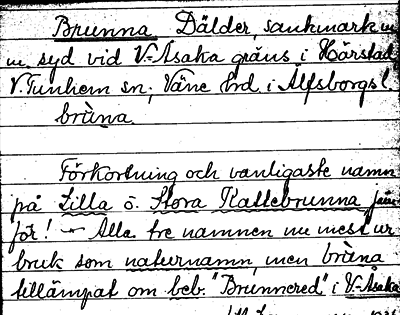 Brunna Dälder, sankmark m
m syd vid V-Åsaka gräns i Hårstad,
V. Tunhem sn; Väne hrd i Älfsborgs l.
bròna
Förkortning och vanligaste namn
på Lilla o. Stora Kattebrunna jäm-
för! — Alla tre namnen nu mest ur
bruk som naturnamn, men bròna
tillämpat om beb. "Brunnered" i V-Åsaka